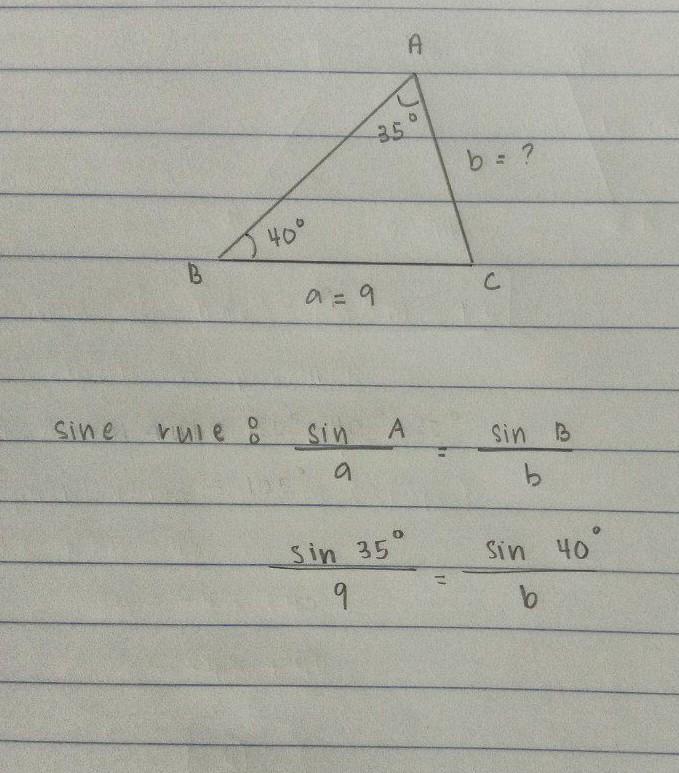 A
35°
b = ?
40°
B
C
a = 9
sine rule : sin A / a = sin B / b
sin 35° / 9 = sin 40° / b